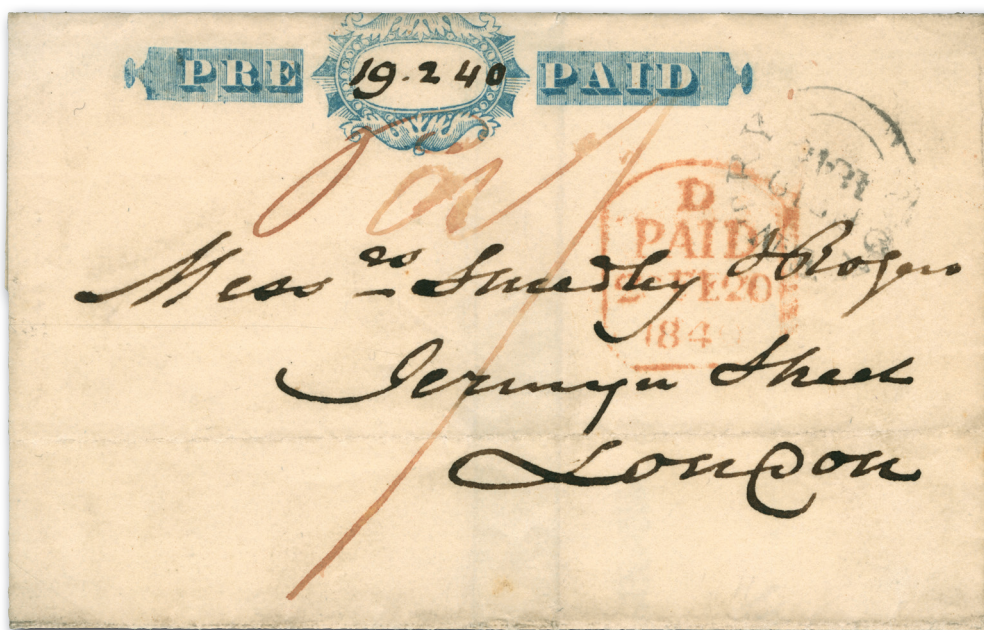 PRE 19.2 40 PAID
Pd 1
D
PAID
20 FE 20
1840
Mess rs Smedly & Rogers
Jermyn Street
London